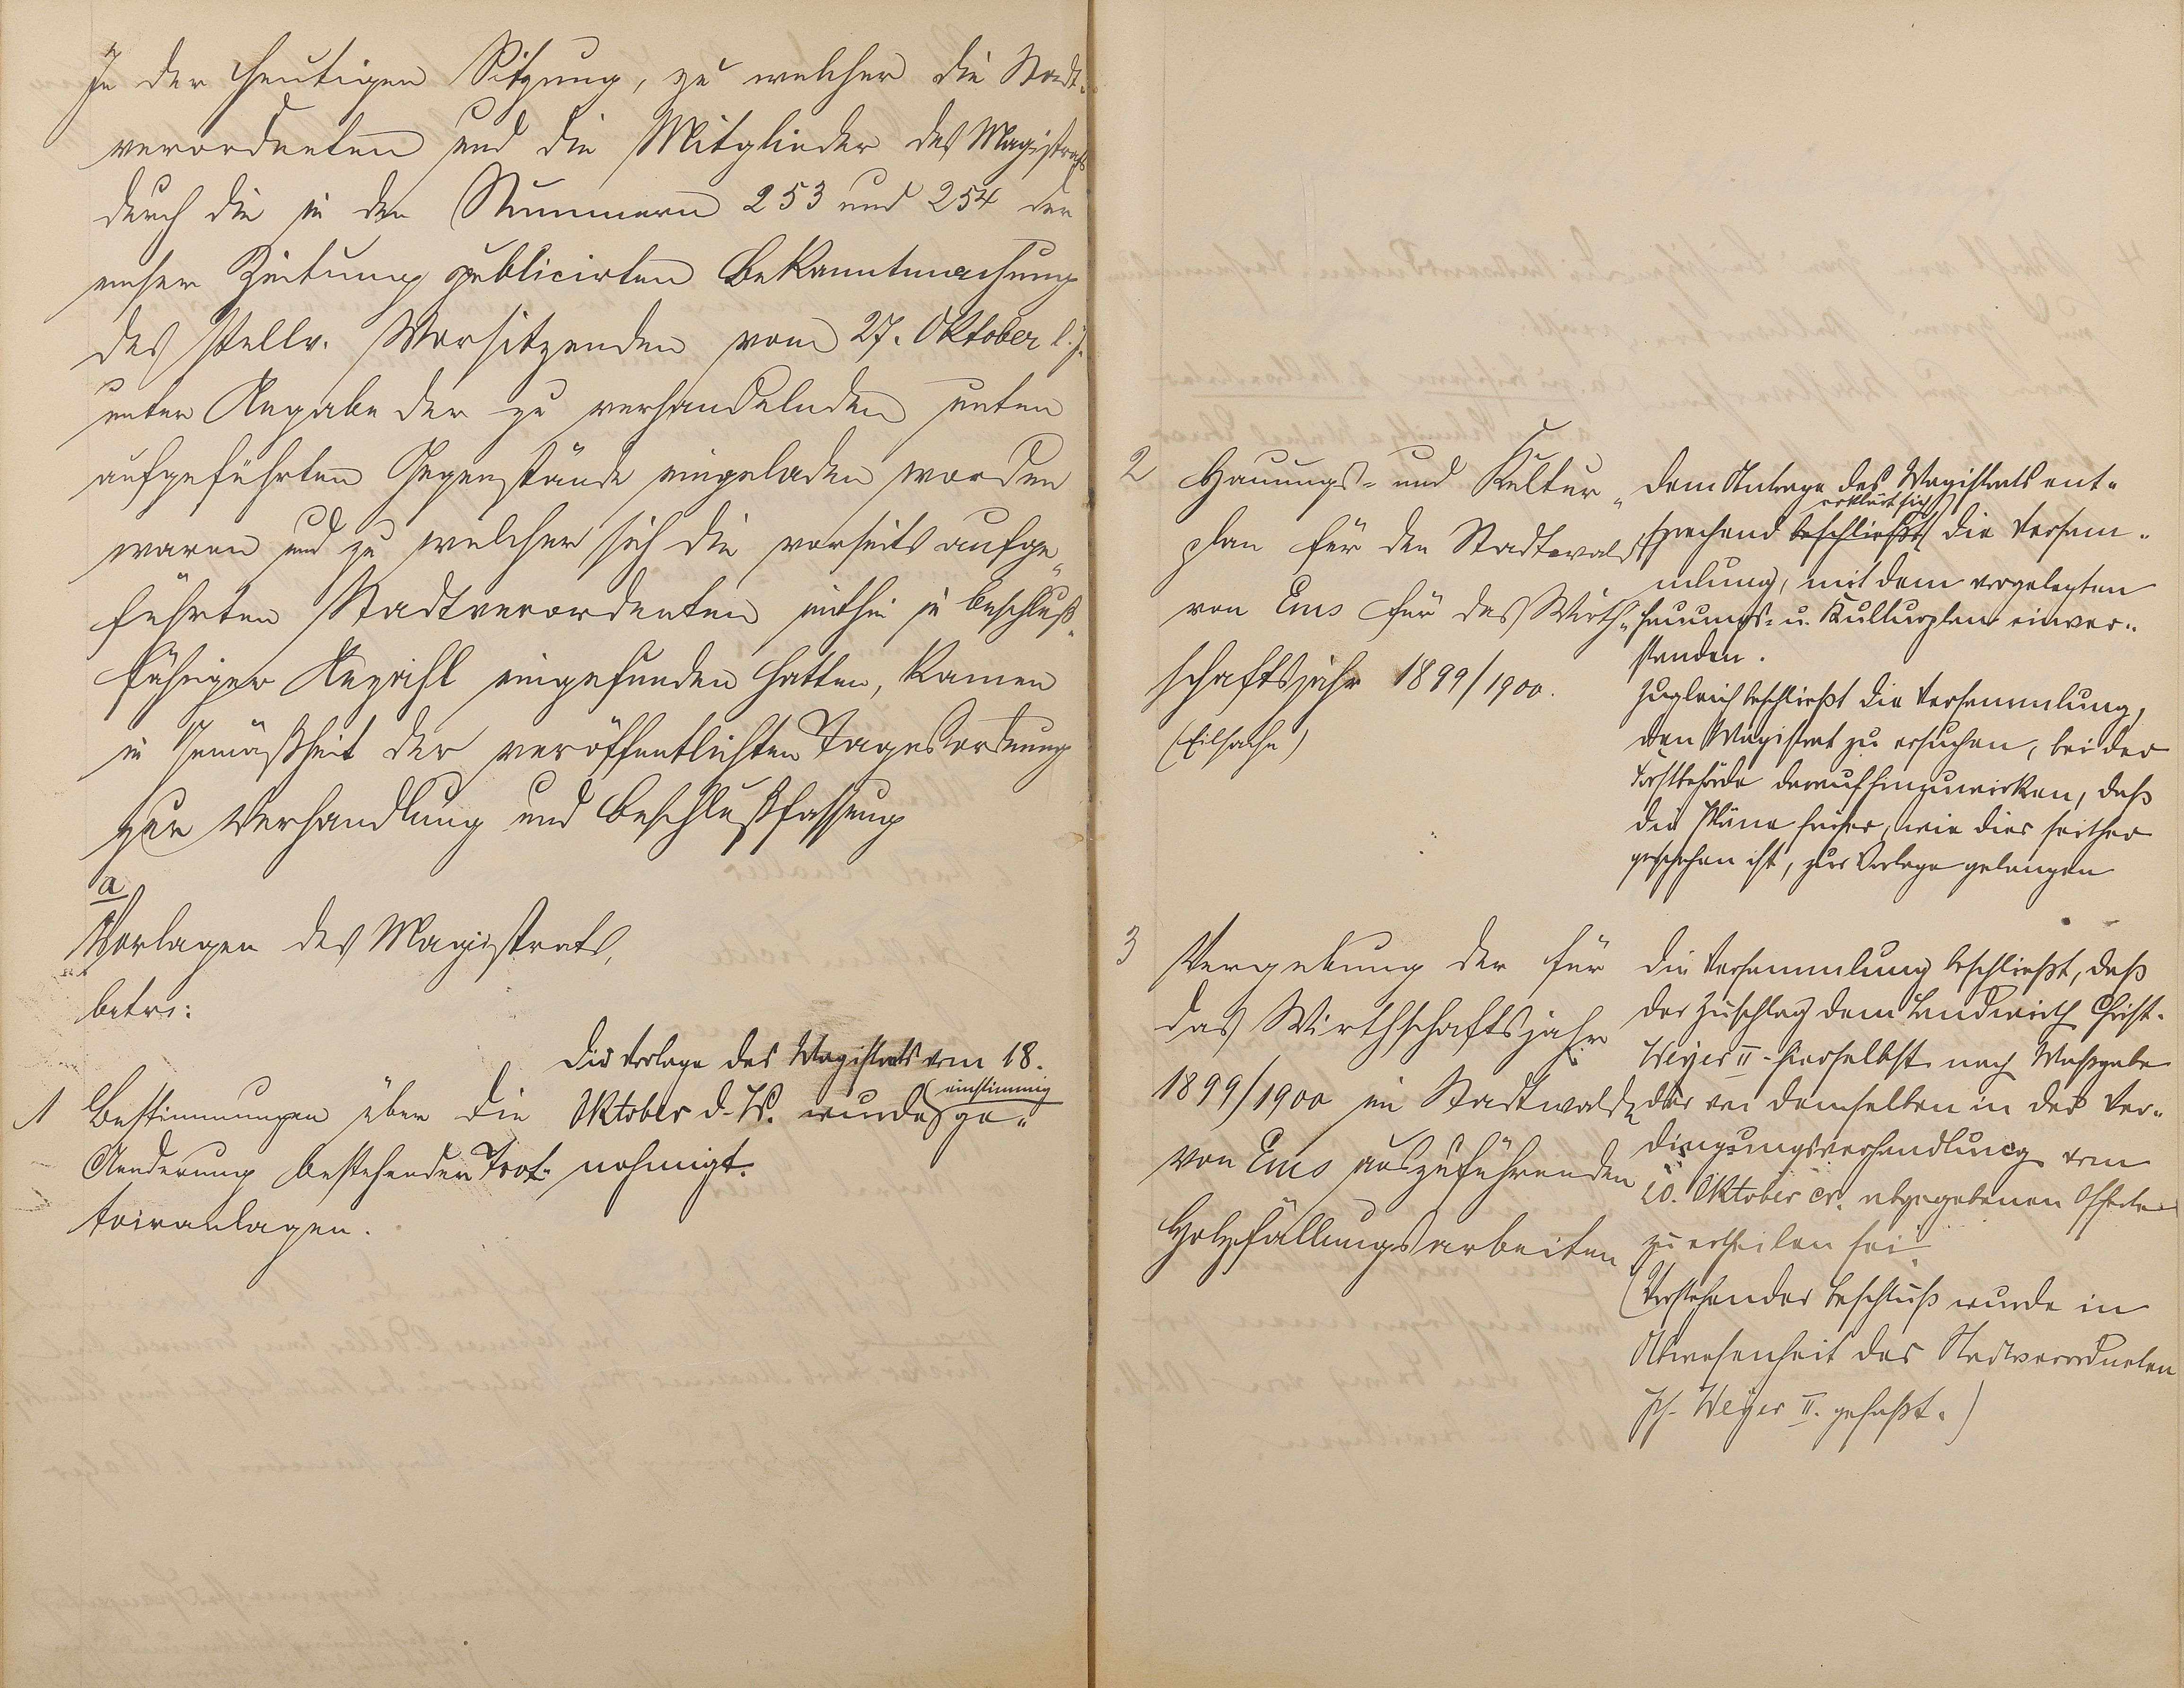 In der heutigen Sitzung, zu welcher die Stadt-
verordneten und die Mitglieder des Magistrats
durch die in den Nummern 253 und 254 der
emser Zeitung publicirten Bekanntmachung
des stellv. Vorsitzenden vom 27. Oktober l. J.
unter Angabe der zu verhandelnden unten
aufgeführten Gegenstände eingeladen worden
waren und zu welcher sich die vorseits aufge-
führten Stadtverordenten mithin in beschluß-
fähiger Anzahl eingefunden hatten, kamen
in Gemäßheit der veröffentlichten Tagesordnung
zur Verhandlung und Beschlußfassung
a
Vorlagen des Magistrats,
betr:
1 Bestimmungen über die
Aenderung bestehender Trot-
toiranlagen.
Die Vorlage des Magistrats vom 18.
einstimmig
Oktober d. Js. wurde ge-
nehmigt.
2 Hauungs- und Kultur-
plan für den Stadtwald
von Ems für das Wirth-
schaftsjahr 1899/1900.
(Eilsache)
Dem Antrage des Magistrats ent-
erklärt sich
sprechend beschließt die Versam-
mlung, mit dem vorgelegten
Hauungs- u. Kulturplan einver-
standen.
Zugleich beschließt die Versammlung,
den Magistrat zu ersuchen, bei der
Forstbehörde daraufhinzuwirken, daß
die Pläne früher, wie dies seither
geschehen ist, zur Vorlage gelangen
3 Vergebung der für
das Wirthschaftsjahr
1899/1900 im Stadtwalde
von Ems auszuführenden
Holzfällungsarbeiten
Die Versammlung beschließt, daß
der Zuschlag dem Landwirth Christ.
Weyer II. hierselbst nach Maßgabe
der von demselben in der Ver-
dingungsverhandlung vom
20. Oktober cr. abgegebenen Offerte
zu ertheilen sei
(Vorstehender Beschluß wurde in
Abwesenheit des Stadtverordneten
Weyer II. gefaßt.)